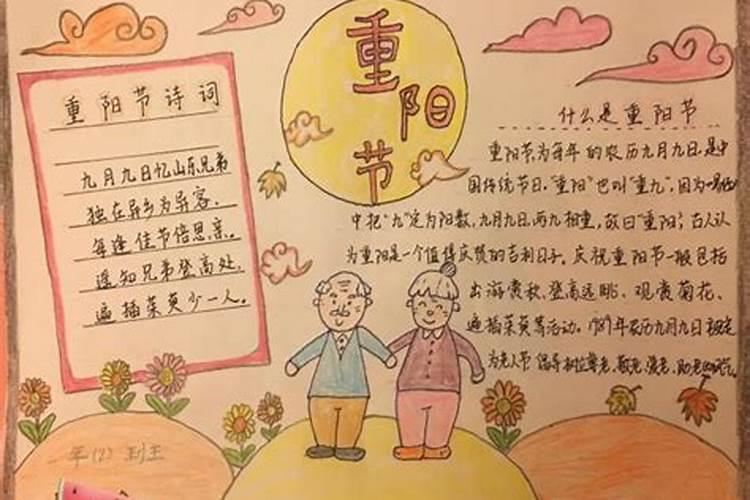 重阳节
重阳节诗词
九月九日忆山东兄弟
独在异乡为异客，
每逢佳节倍思亲。
遥知兄弟登高处，
遍插茱萸少一人。
什么是重阳节
重阳节，为每年的农历九月九日，是中
国传统节日。“重阳”也叫“重九”，因为《易经》
中把“九”定为阳数，九月九日，两九相重，故曰“重阳”；古人认
为重阳是一个值得庆贺的吉利日子。庆祝重阳节一般包括
出游赏秋、登高远眺、观赏菊花、
遍插茱萸等活动。1989年农历九月九日被定
为老人节，倡导树立尊老、敬老、爱老、助老的
一年(2)班王